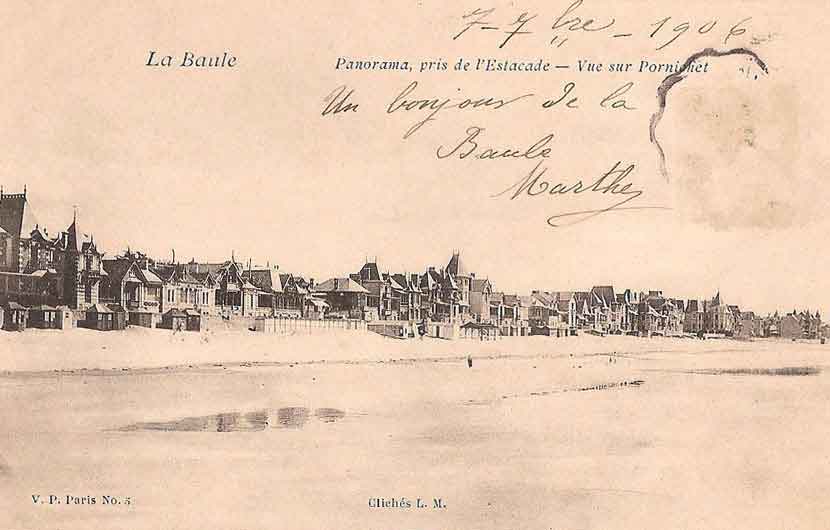 7-7bre - 1906
La Baule
Panorama, pris de l'Estacade — Vue sur Pornichet
Un bonjour de la
Baule
Marthe
V. P. Paris No. 5
Clichés L. M.